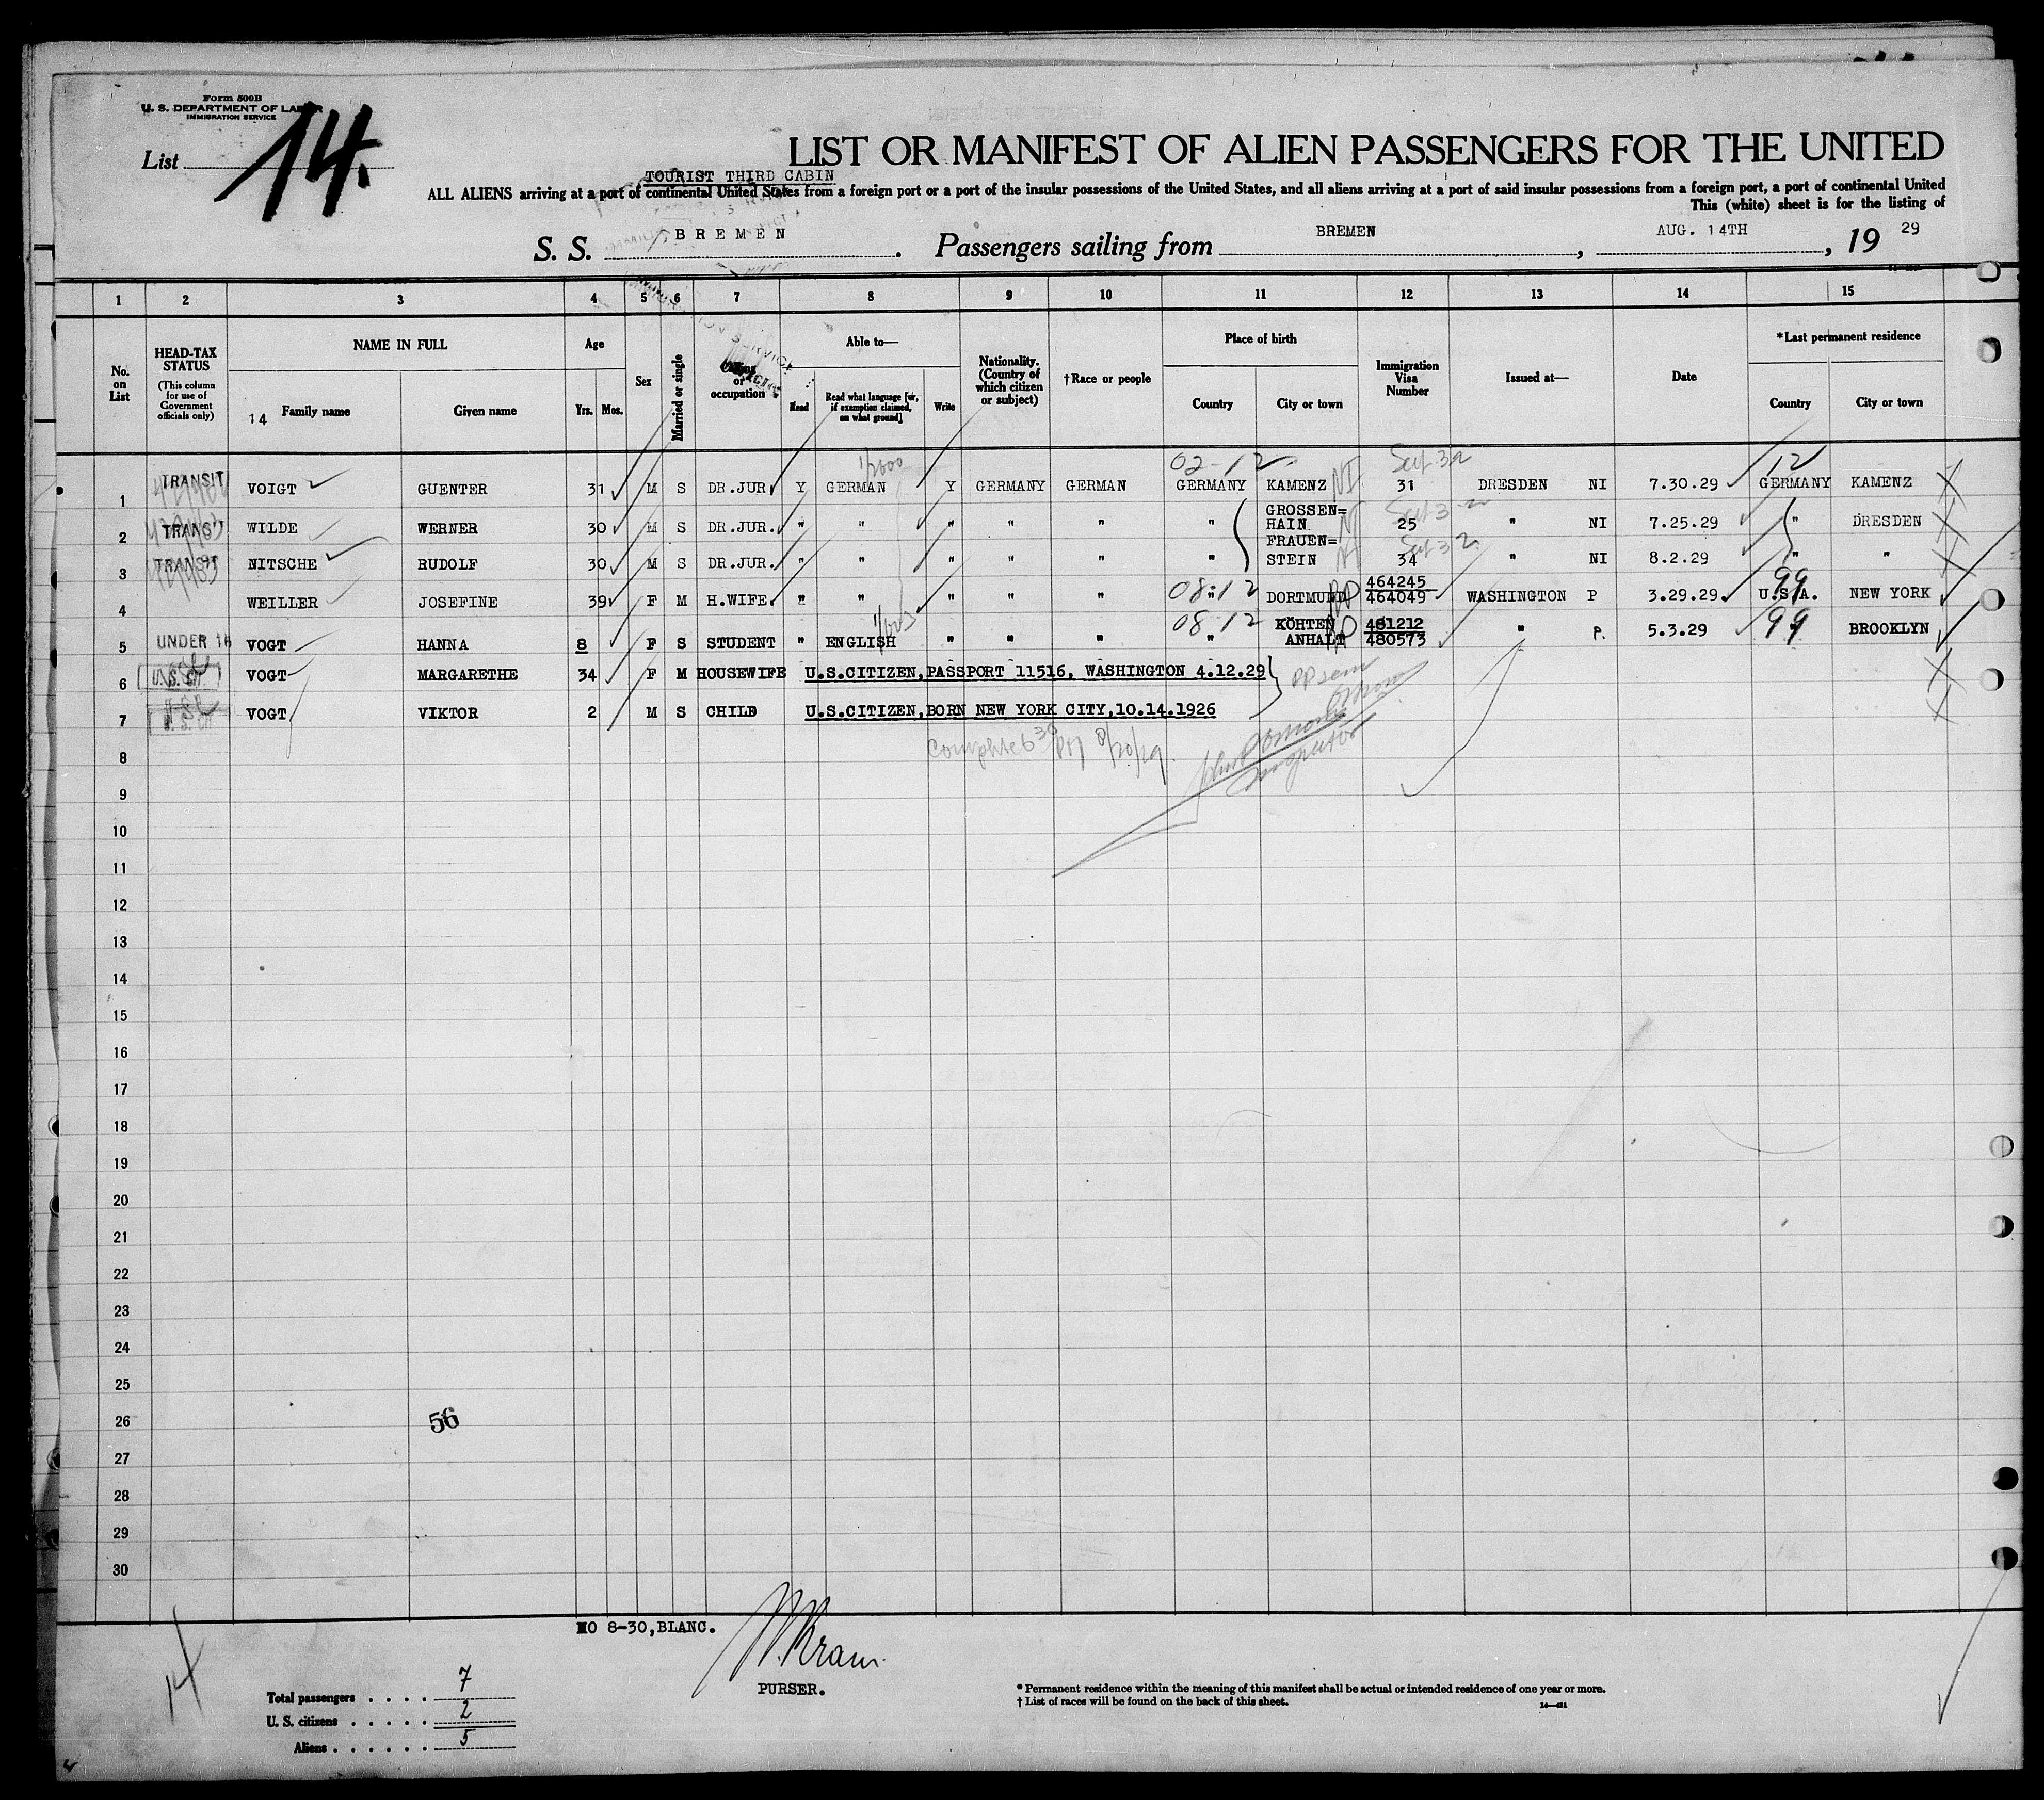 Form 500B
U. S. DEPARTMENT OF LABOR
IMMIGRATION SERVICE
List 14.
LIST OR MANIFEST OF ALIEN PASSENGERS FOR THE UNITED
TOURIST THIRD CABIN
ALL ALIENS arriving at a port of continental United States from a foreign port or a port of the insular possessions of the United States, and all aliens arriving at a port of said insular possessions from a foreign port, a port of continental United
This (white) sheet is for the listing of
S. S. BREMEN. Passengers sailing from BREMEN, AUG. 14TH, 19 29
1 2 3 4 5 6 7 8 9 10 11 12 13 14 15
No. on List
HEAD-TAX STATUS
(This column for use of Government officials only)
NAME IN FULL
14 Family name
Given name
Age
Yrs. Mos.
Sex
Married or single
Calling or occupation
Able to—
Read
Read what language [or, if exemption claimed, on what ground]
Write
Nationality. (Country of which citizen or subject)
†Race or people
Place of birth
Country
City or town
Immigration Visa Number
Issued at—
Date
*Last permanent residence
Country
City or town
02-12 12
1 TRANSIT VOIGT GUENTER 31 M S DR.JUR. Y GERMAN Y GERMANY GERMAN GERMANY KAMENZ NI 31 DRESDEN NI 7.30.29 GERMANY KAMENZ
2 TRANSIT WILDE WERNER 30 M S DR.JUR. " " " " " " GROSSEN= HAIN 25 " NI 7.25.29 " DRESDEN
3 TRANSIT NITSCHE RUDOLF 30 M S DR.JUR. " " " " " " FRAUEN= STEIN 34 " NI 8.2.29 " "
4 WEILLER JOSEFINE 39 F M H.WIFE. " " " " " 08-12 " DORTMUND 464245 464049 WASHINGTON P 3.29.29 99 U.S.A. NEW YORK
5 UNDER 16 VOGT HANNA 8 F S STUDENT " ENGLISH " " " 08 12 " KÖHTEN ANHALT 481212 480573 " P. 5.3.29 99 BROOKLYN
6 VOGT MARGARETHE 34 F M HOUSEWIFE U.S.CITIZEN,PASSPORT 11516, WASHINGTON 4.12.29
7 VOGT VIKTOR 2 M S CHILD U.S.CITIZEN,BORN NEW YORK CITY,10.14.1926
8
9
10
11
12
13
14
15
16
17
18
19
20
21
22
23
24
25
26 56
27
28
29
30
NO 8-30,BLANC.
PURSER.
Total passengers . . . . 7
U. S. citizens . . . . . 2
Aliens . . . . . . 5
* Permanent residence within the meaning of this manifest shall be actual or intended residence of one year or more.
† List of races will be found on the back of this sheet.
14